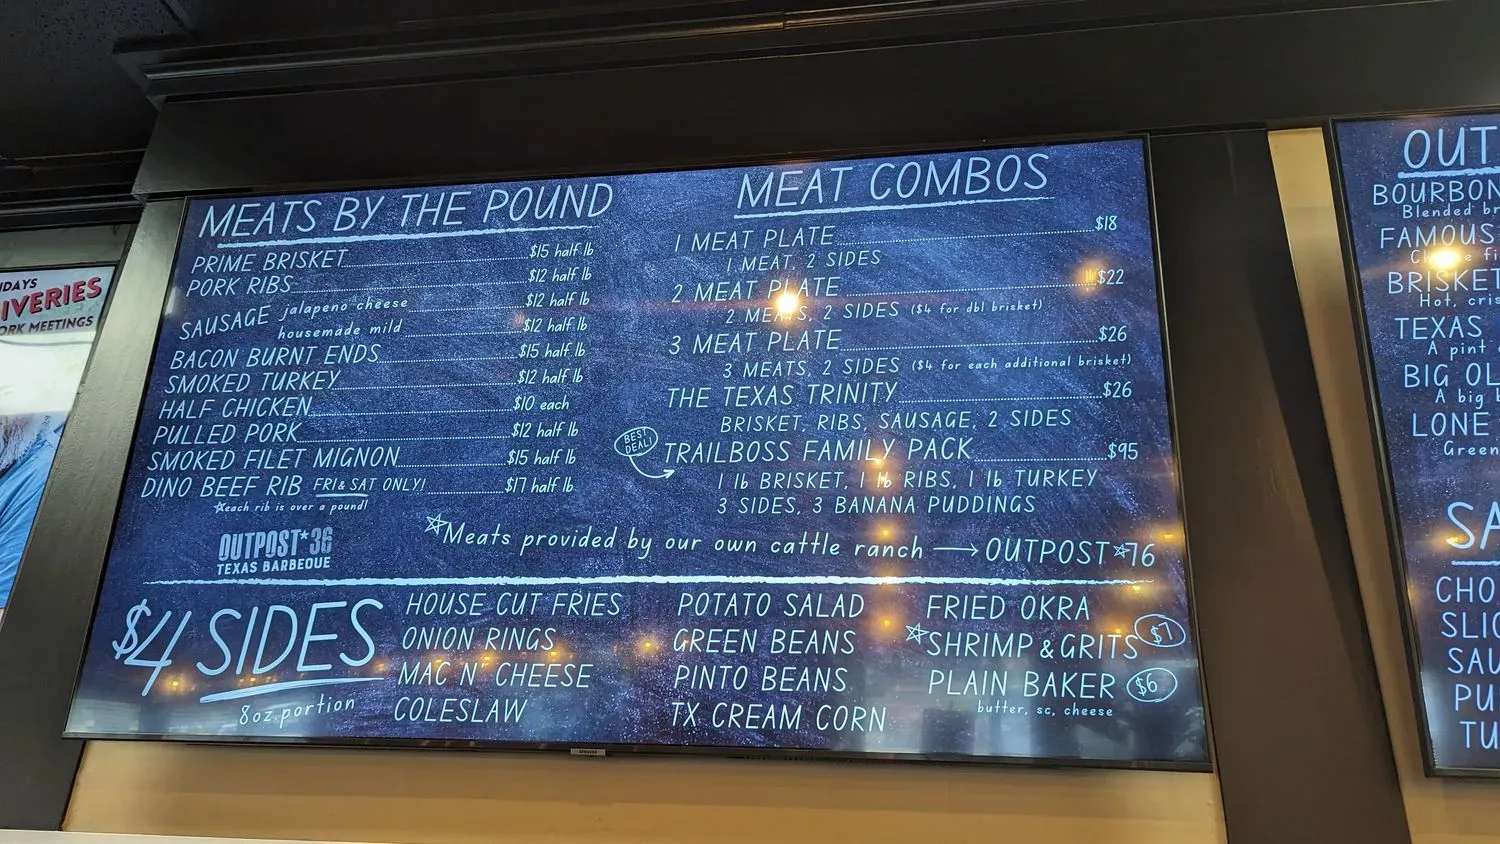 IDAYS
IVERIES
ORK MEETINGS
MEATS BY THE POUND
PRIME BRISKET $15 half lb
PORK RIBS $12 half lb
SAUSAGE jalapeno cheese $12 half lb
housemade mild $12 half lb
BACON BURNT ENDS $15 half lb
SMOKED TURKEY $12 half lb
HALF CHICKEN $10 each
PULLED PORK $12 half lb
SMOKED FILET MIGNON $15 half lb
DINO BEEF RIB FRI & SAT ONLY! $17 half lb
*each rib is over a pound!
OUTPOST*36
TEXAS BARBEQUE
MEAT COMBOS
1 MEAT PLATE $18
1 MEAT, 2 SIDES
2 MEAT PLATE $22
2 MEATS, 2 SIDES ($4 for dbl brisket)
3 MEAT PLATE $26
3 MEATS, 2 SIDES ($4 for each additional brisket)
THE TEXAS TRINITY $26
BRISKET, RIBS, SAUSAGE, 2 SIDES
BEST DEAL!
TRAILBOSS FAMILY PACK $95
1 lb BRISKET, 1 lb RIBS, 1 lb TURKEY
3 SIDES, 3 BANANA PUDDINGS
*Meats provided by our own cattle ranch → OUTPOST*76
$4 SIDES
8oz. portion
HOUSE CUT FRIES
ONION RINGS
MAC N' CHEESE
COLESLAW
POTATO SALAD
GREEN BEANS
PINTO BEANS
TX CREAM CORN
FRIED OKRA
*SHRIMP & GRITS $7
PLAIN BAKER $6
butter, sc, cheese
SAMSUNG
OUT
BOURBON
Blended br
FAMOUS
fi
BRISKET
Hot, cris
TEXAS
A pint
BIG OL
A big b
LONE
Green
SA
CHO
SLIC
SAU
PU
TU